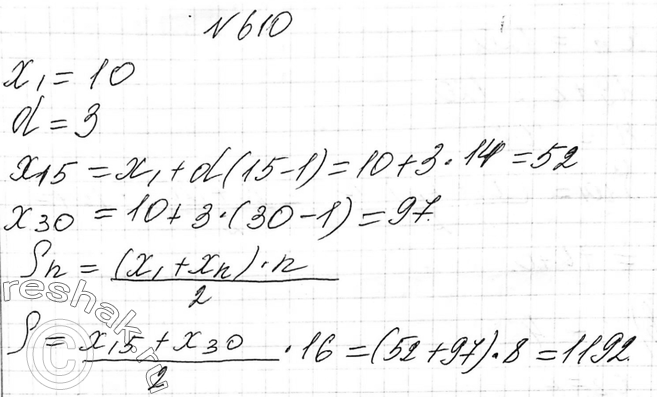 N610
x₁ = 10
d = 3
x₁₅ = x₁ + d(15-1) = 10 + 3 · 14 = 52
x₃₀ = 10 + 3 · (30-1) = 97.
Sₙ = (x₁ + xₙ) · n / 2
S = x₁₅ + x₃₀ / 2 · 16 = (52 + 97) · 8 = 1192.
reshak.ru